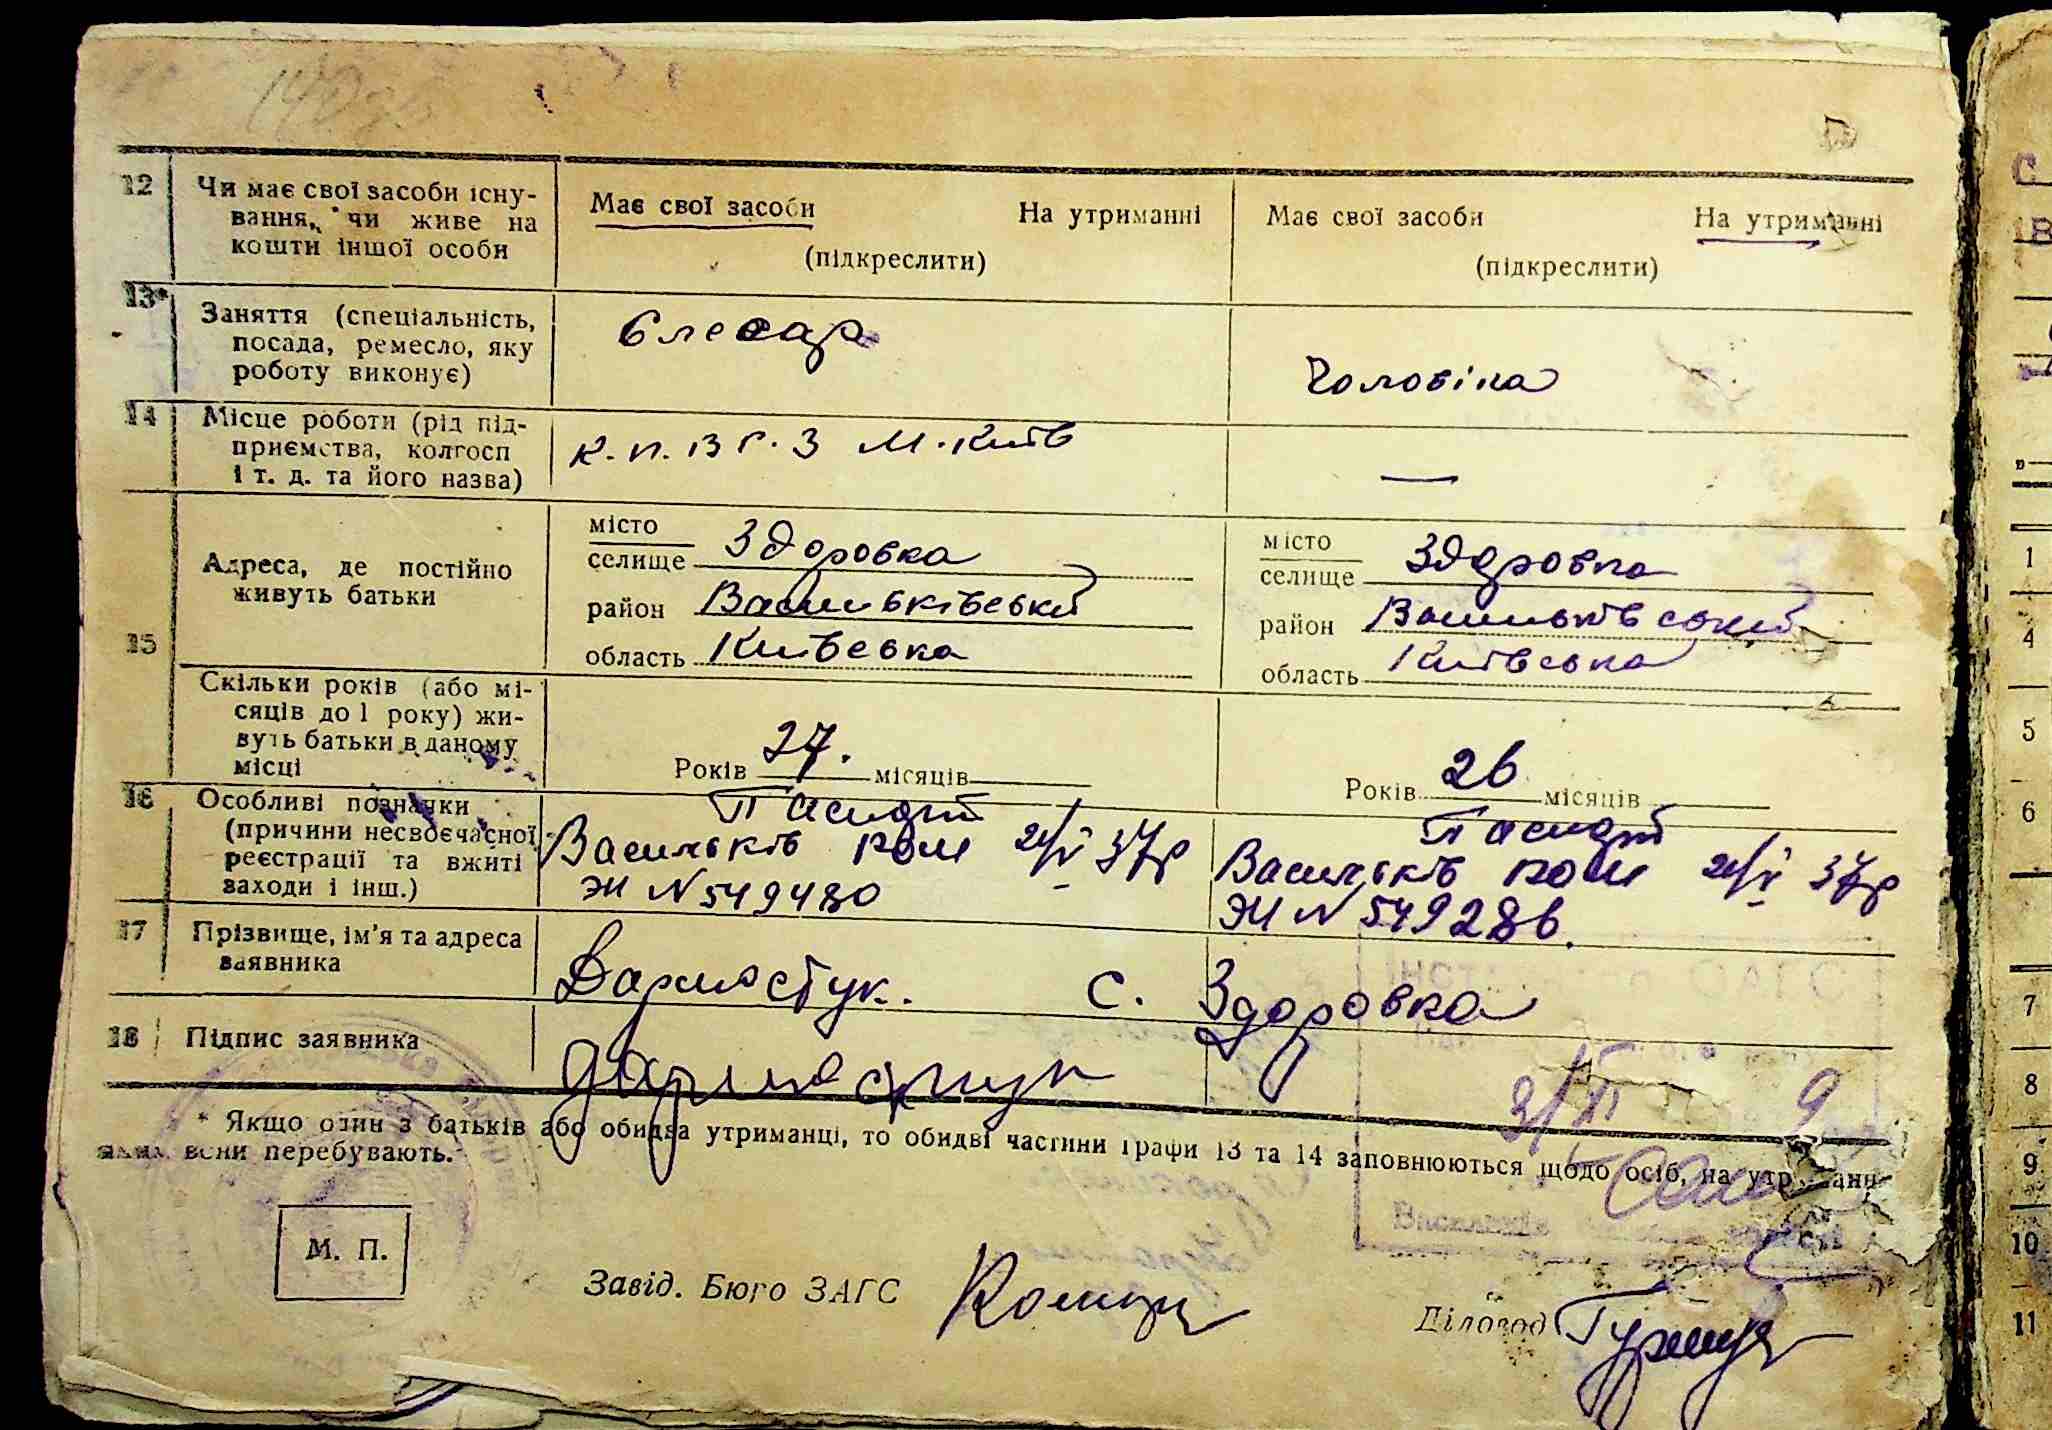 12
Чи має свої засоби існу-
вання, чи живе на
кошти іншої особи
Має свої засоби На утриманні
(підкреслити)
Має свої засоби На утриманні
(підкреслити)
13*
Заняття (спеціальність,
посада, ремесло, яку
роботу виконує)
Слесар
Чоловіка
14
Місце роботи (рід під-
приємства, колгосп
і т. д. та його назва)
К.П.В Г.З М.Київ
—
15
Адреса, де постійно
живуть батьки
місто
селище Здоровка
район Васильківський
область Київська
місто
селище Здоровка
район Васильківський
область Київська
Скільки років (або мі-
сяців до 1 року) жи-
вуть батьки в даному
місці
Років 27. місяців
Років 26 місяців
16
Особливі позначки
(причини несвоєчасної
реєстрації та вжиті
заходи і інш.)
Паспорт
Васильків 37р
ЖИ N 549480
Паспорт
Васильків 37р
ЖИ N 549286.
17
Прізвище, ім'я та адреса
заявника
Дармостук. С. Здоровка
18
Підпис заявника
Дармостук
* Якщо один з батьків або обидва утриманці, то обидві частини графи 13 та 14 заповнюються щодо осіб, на утриманні
яких вони перебувають.
М. П.
Завід. Бюро ЗАГС
Діловод
1
4
5
6
7
8
9
10
11